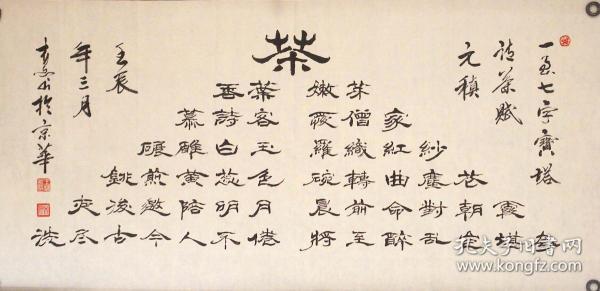 一至七字寶塔
詩茶賦
元稹
茶
香葉 嫩芽
慕詩客 愛僧家
碾雕白玉 羅織紅紗
銚煎黃蕊色 碗轉曲塵花
夜後邀陪明月 晨前命對朝霞
洗尽古今人不倦 將至醉乱豈堪夸
壬辰
年三月
於京華
孔夫子旧书网
www.kongfz.com